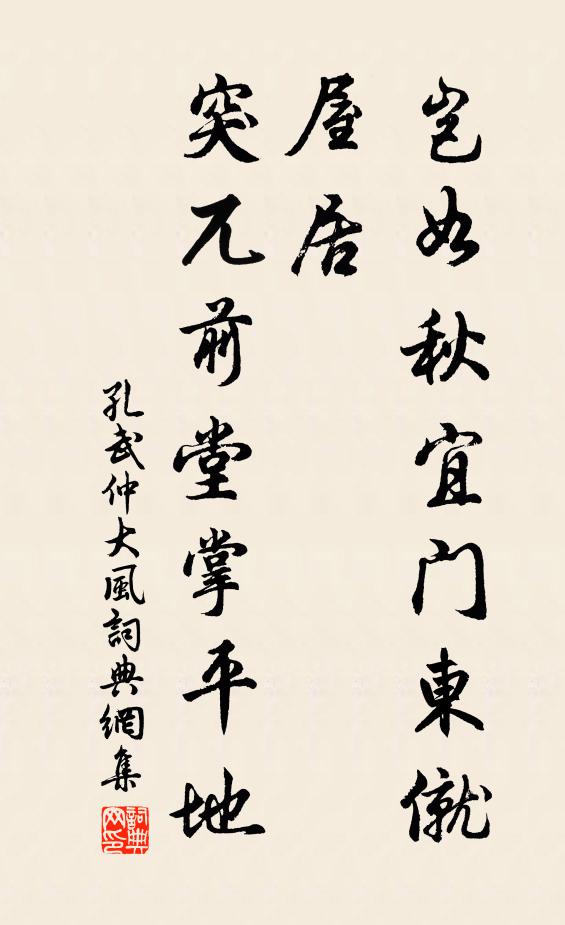 豈如秋宜門東僦
屋居
突兀前堂掌平地
孔武仲大風詞典網集
詞典网印